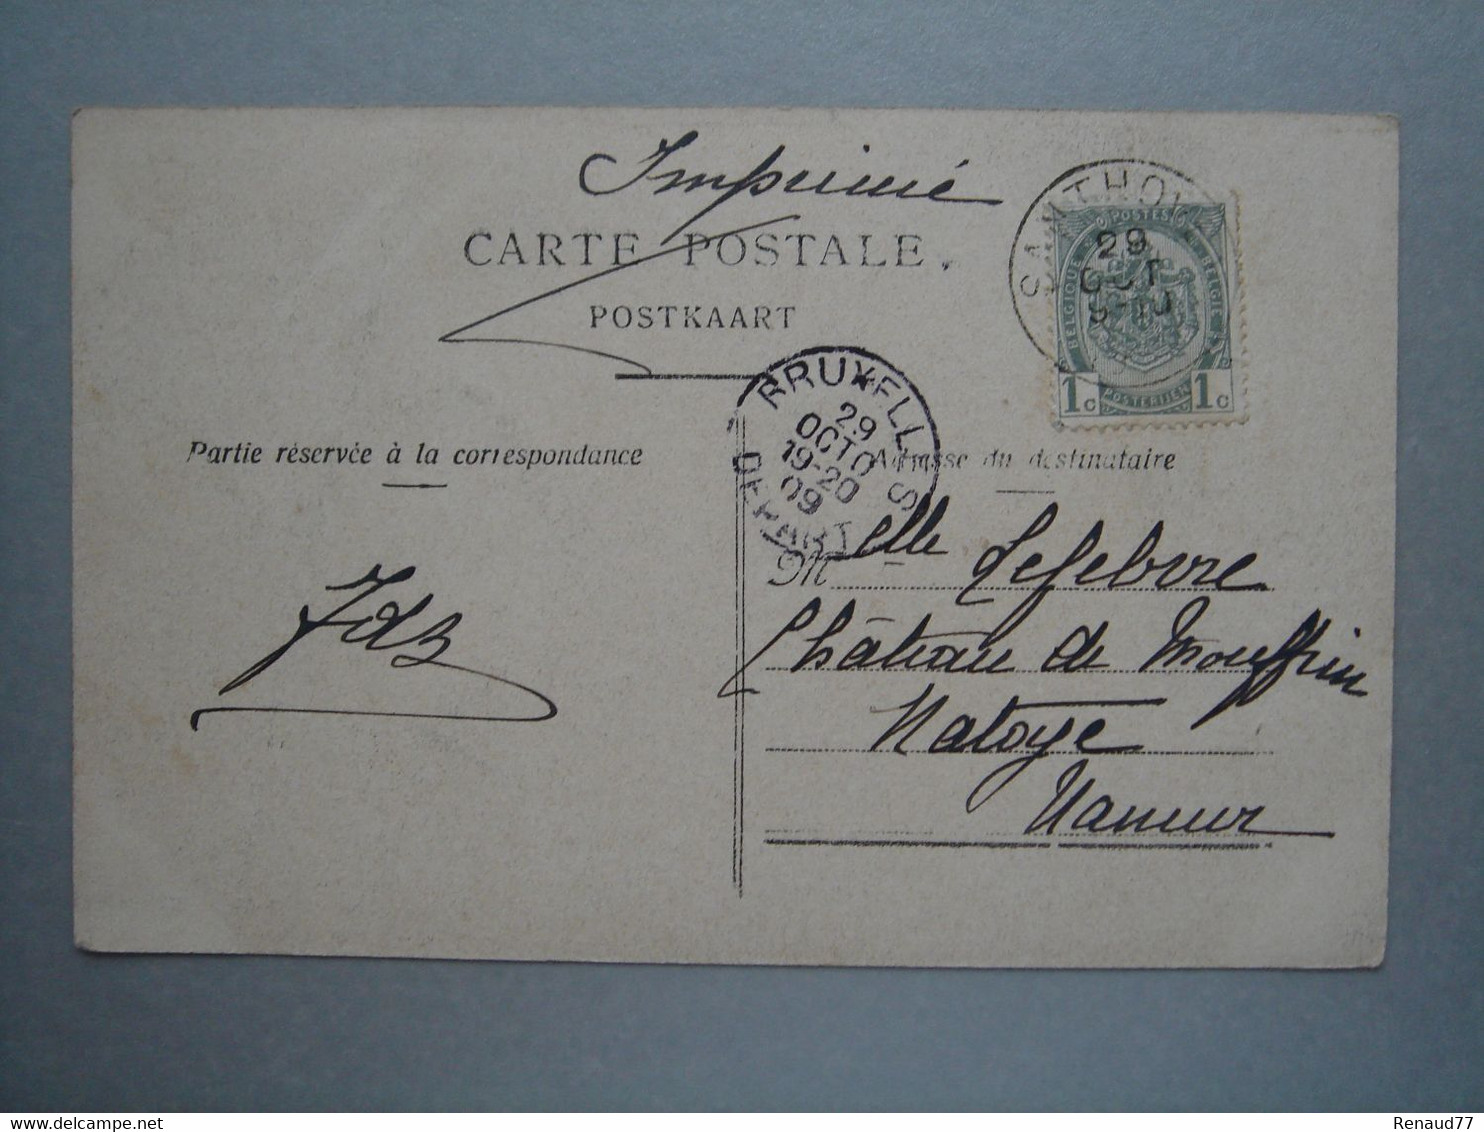 Imprimé
CARTE POSTALE.
POSTKAART
POSTES
BELGIQUE
BELGIE
29
OCT
9-10
1c
POSTERIJEN
1c
BRUXELLES
29
OCTO
19-20
09
DEPART
Partie réservée à la correspondance
Adresse du destinataire
Melle Lefebvre
Château de Mouffrin
Natoye
Namur
Renaud77